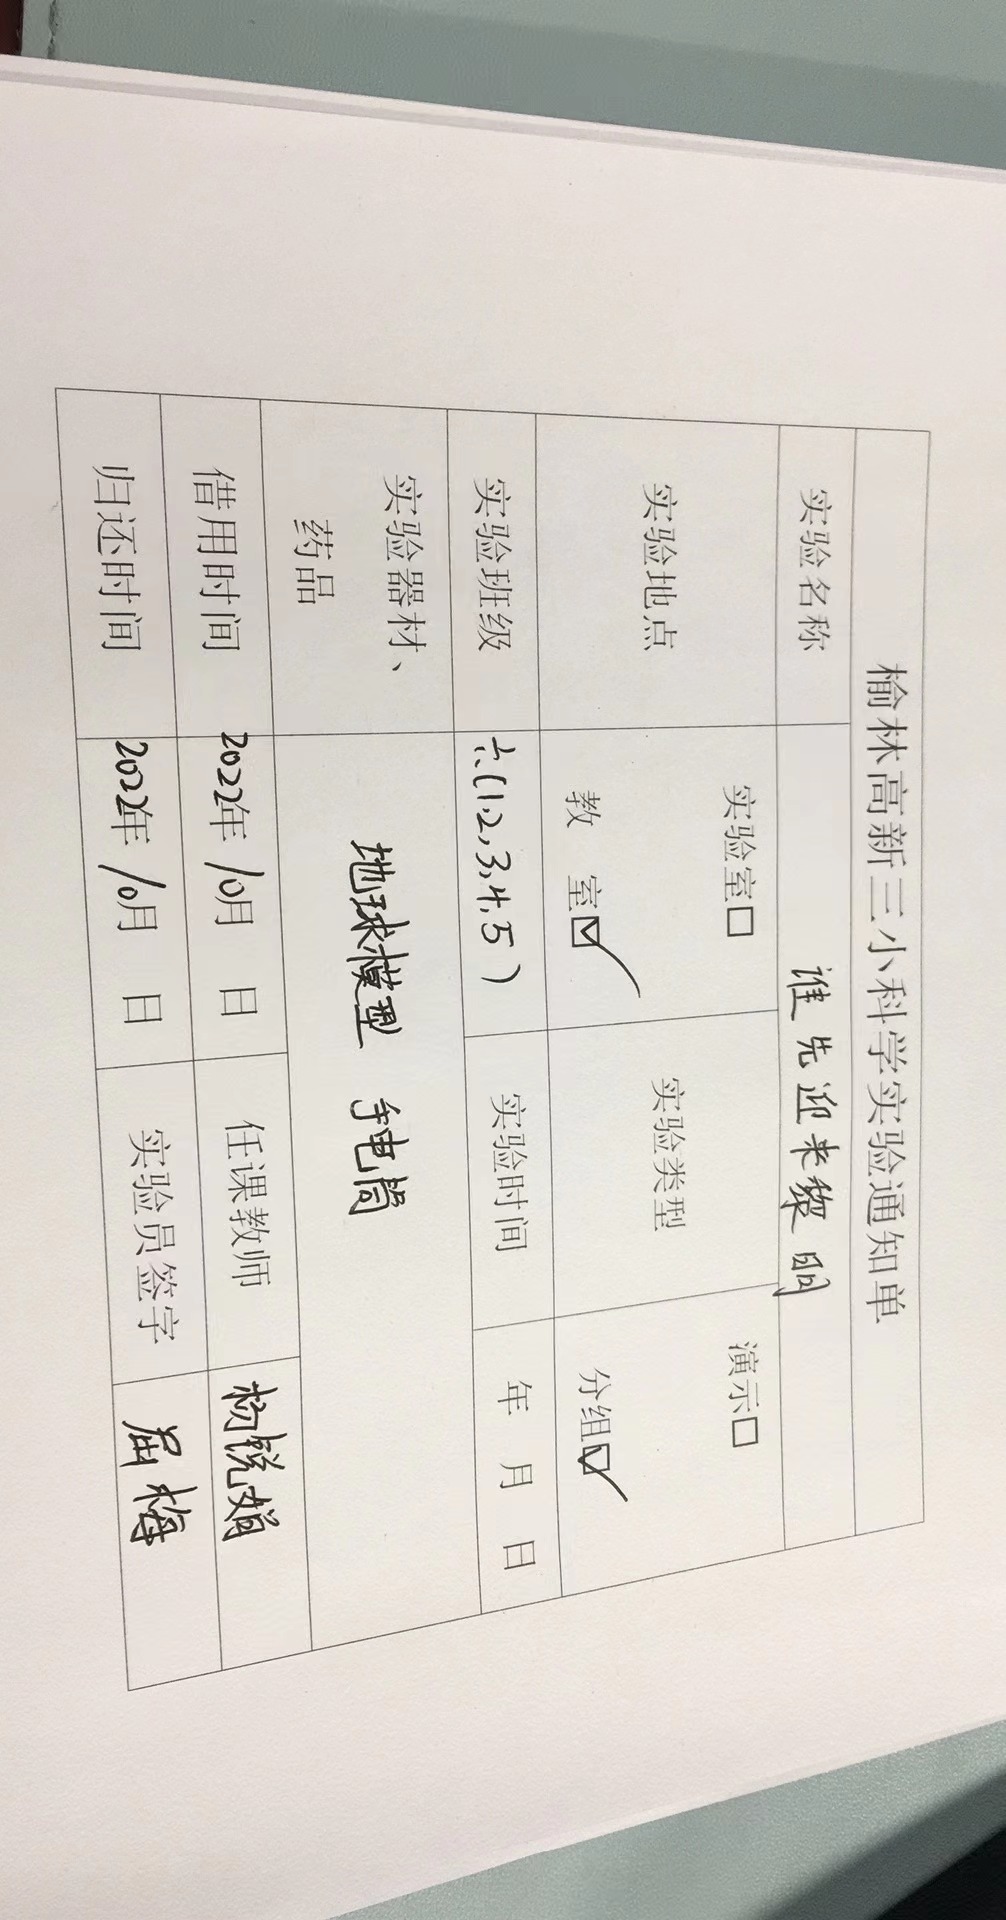 榆林高新三小科学实验通知单
实验名称 谁先迎来黎明
实验地点 实验室□ 教 室☑ 实验类型 演示□ 分组☑
实验班级 六(1,2,3,4,5) 实验时间 年 月 日
实验器材、
药品 地球模型 手电筒
借用时间 2022年10月 日 任课教师 杨锐娟
归还时间 2022年10月 日 实验员签字 屈梅